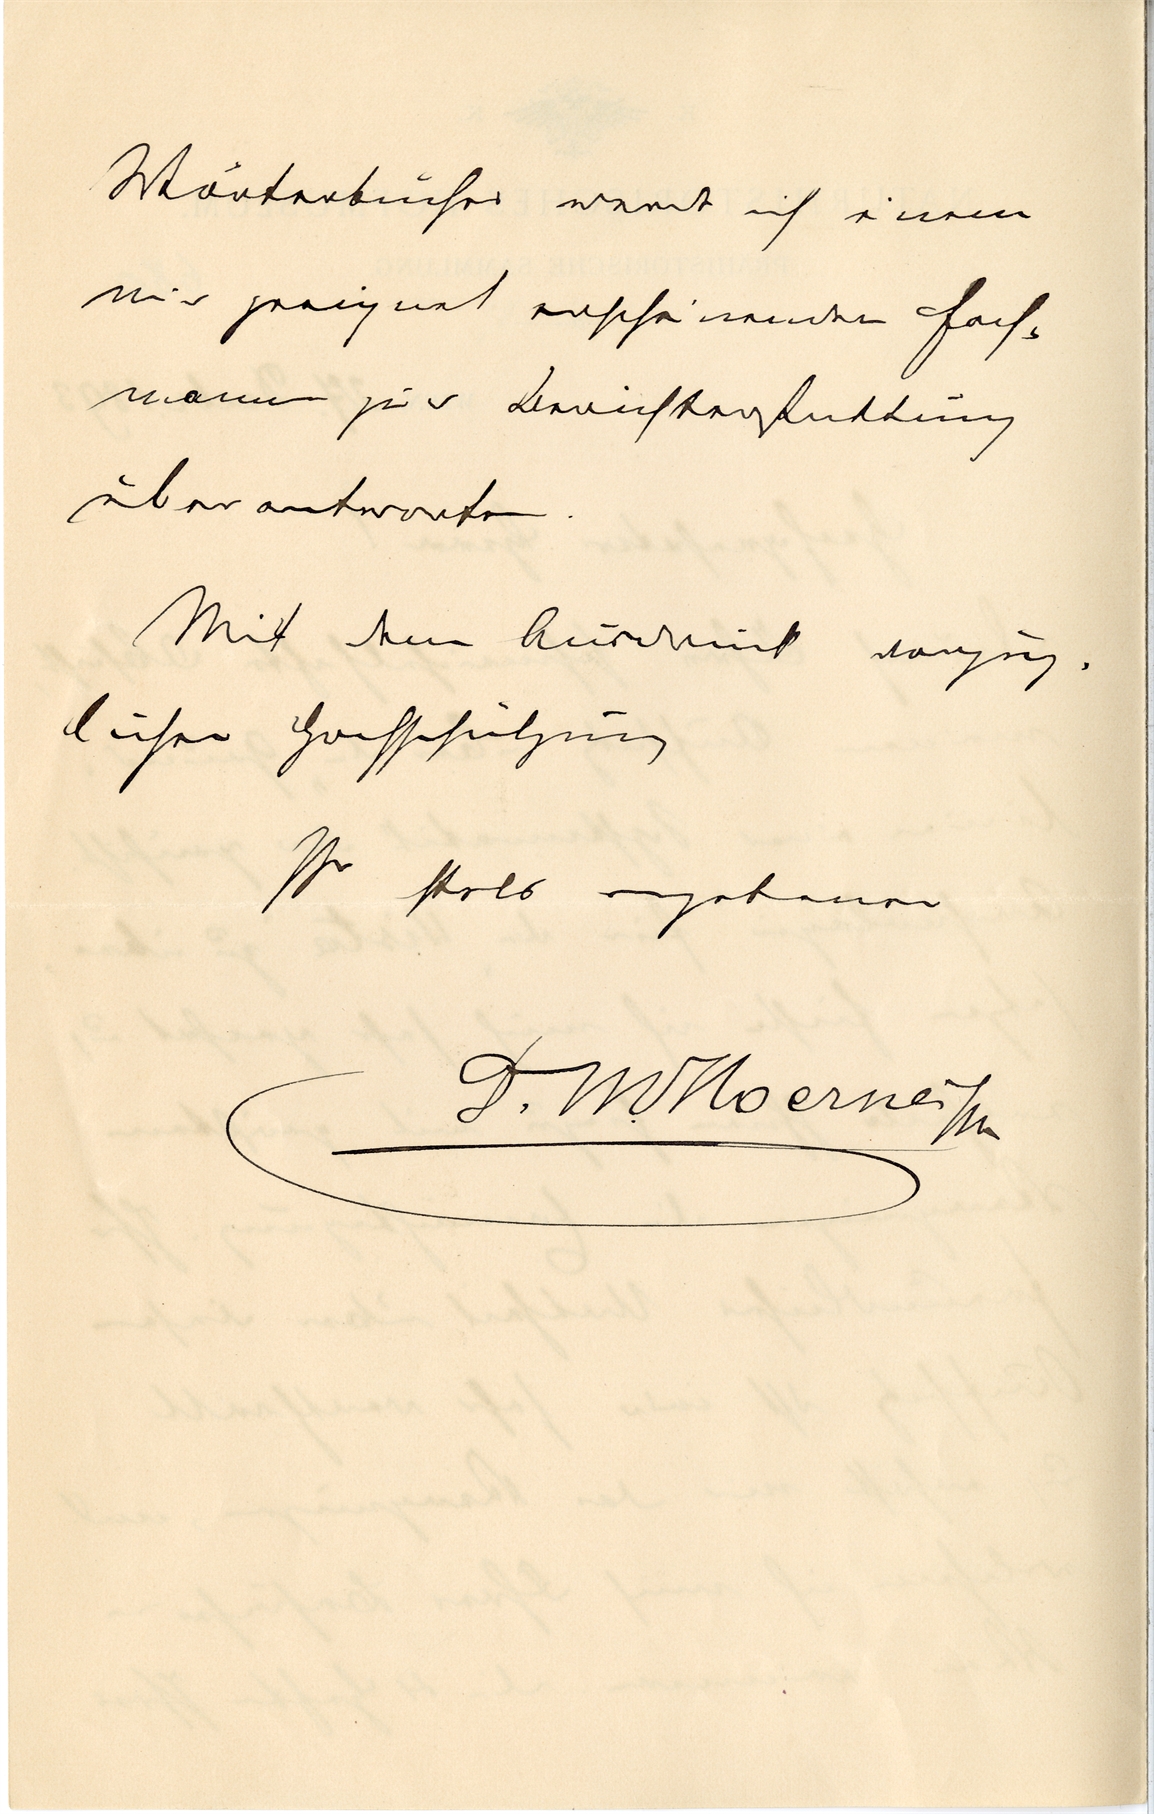 Wörterbuches werde ich einem
mir geeignet erscheinenden Fach-
mann zur Berichterstattung
überantworten.
Mit dem Ausdruck vorzüg-
licher Hochschätzung
Ihr stets ergebener
D. M. Hoernes